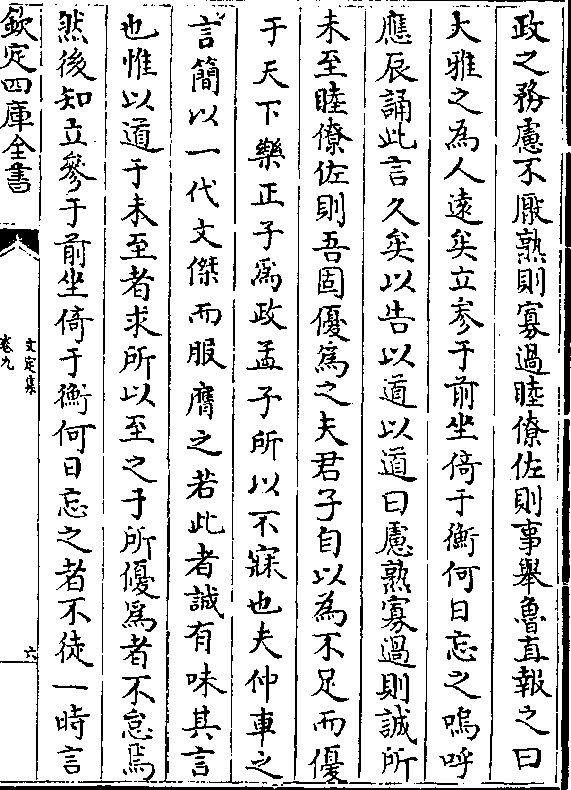 政之務慮不厭熟則寡過睦僚佐則事舉魯直報之曰
大雅之為人逺矣立参于前坐倚于衡何日忘之嗚呼
應辰誦此言久矣以告以道以道曰慮熟寡過則誠所
未至睦僚佐則吾固優為之夫君子自以為不足而優
于天下樂正子為政孟子所以不寐也夫仲車之
言簡以一代文傑而服膺之若此者誠有味其言
也惟以道于未至者求所以至之于所優為者不怠焉
然後知立參于前坐倚于衡何日忘之者不徒一時言
欽定四庫全書
文定集
卷九
六